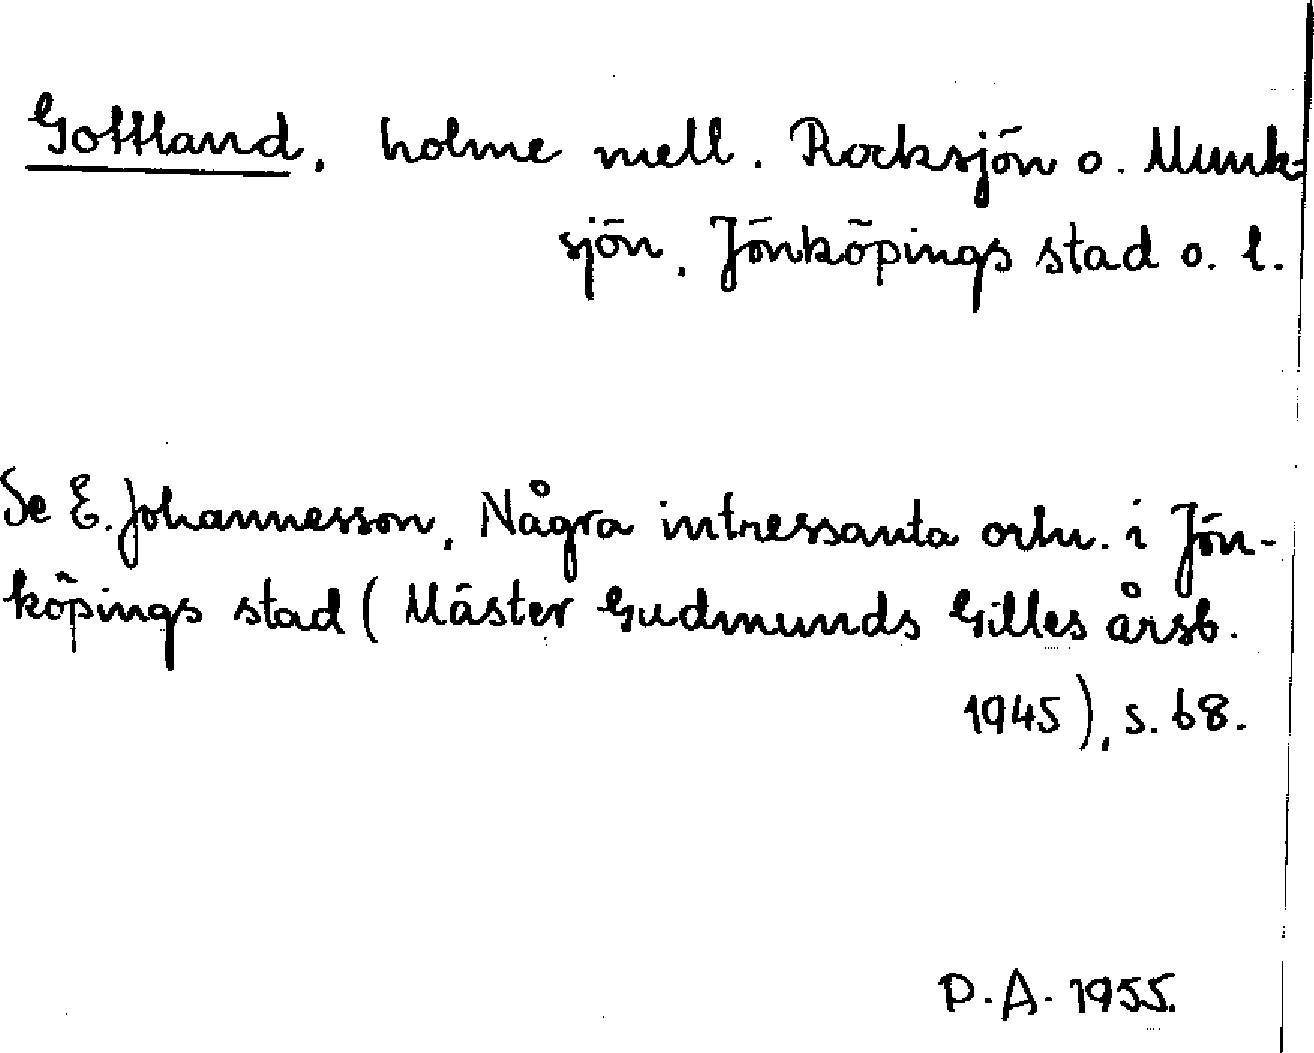 Gottland, holme mell. Rocksjön o. Munk-
sjön, Jönköpings stad o. l.
Se E. Johannesson, Några intressanta ortn. i Jön-
köpings stad (Mäster Gudmunds Gilles årsb.
1945), s. 68.
P. A. 1955.